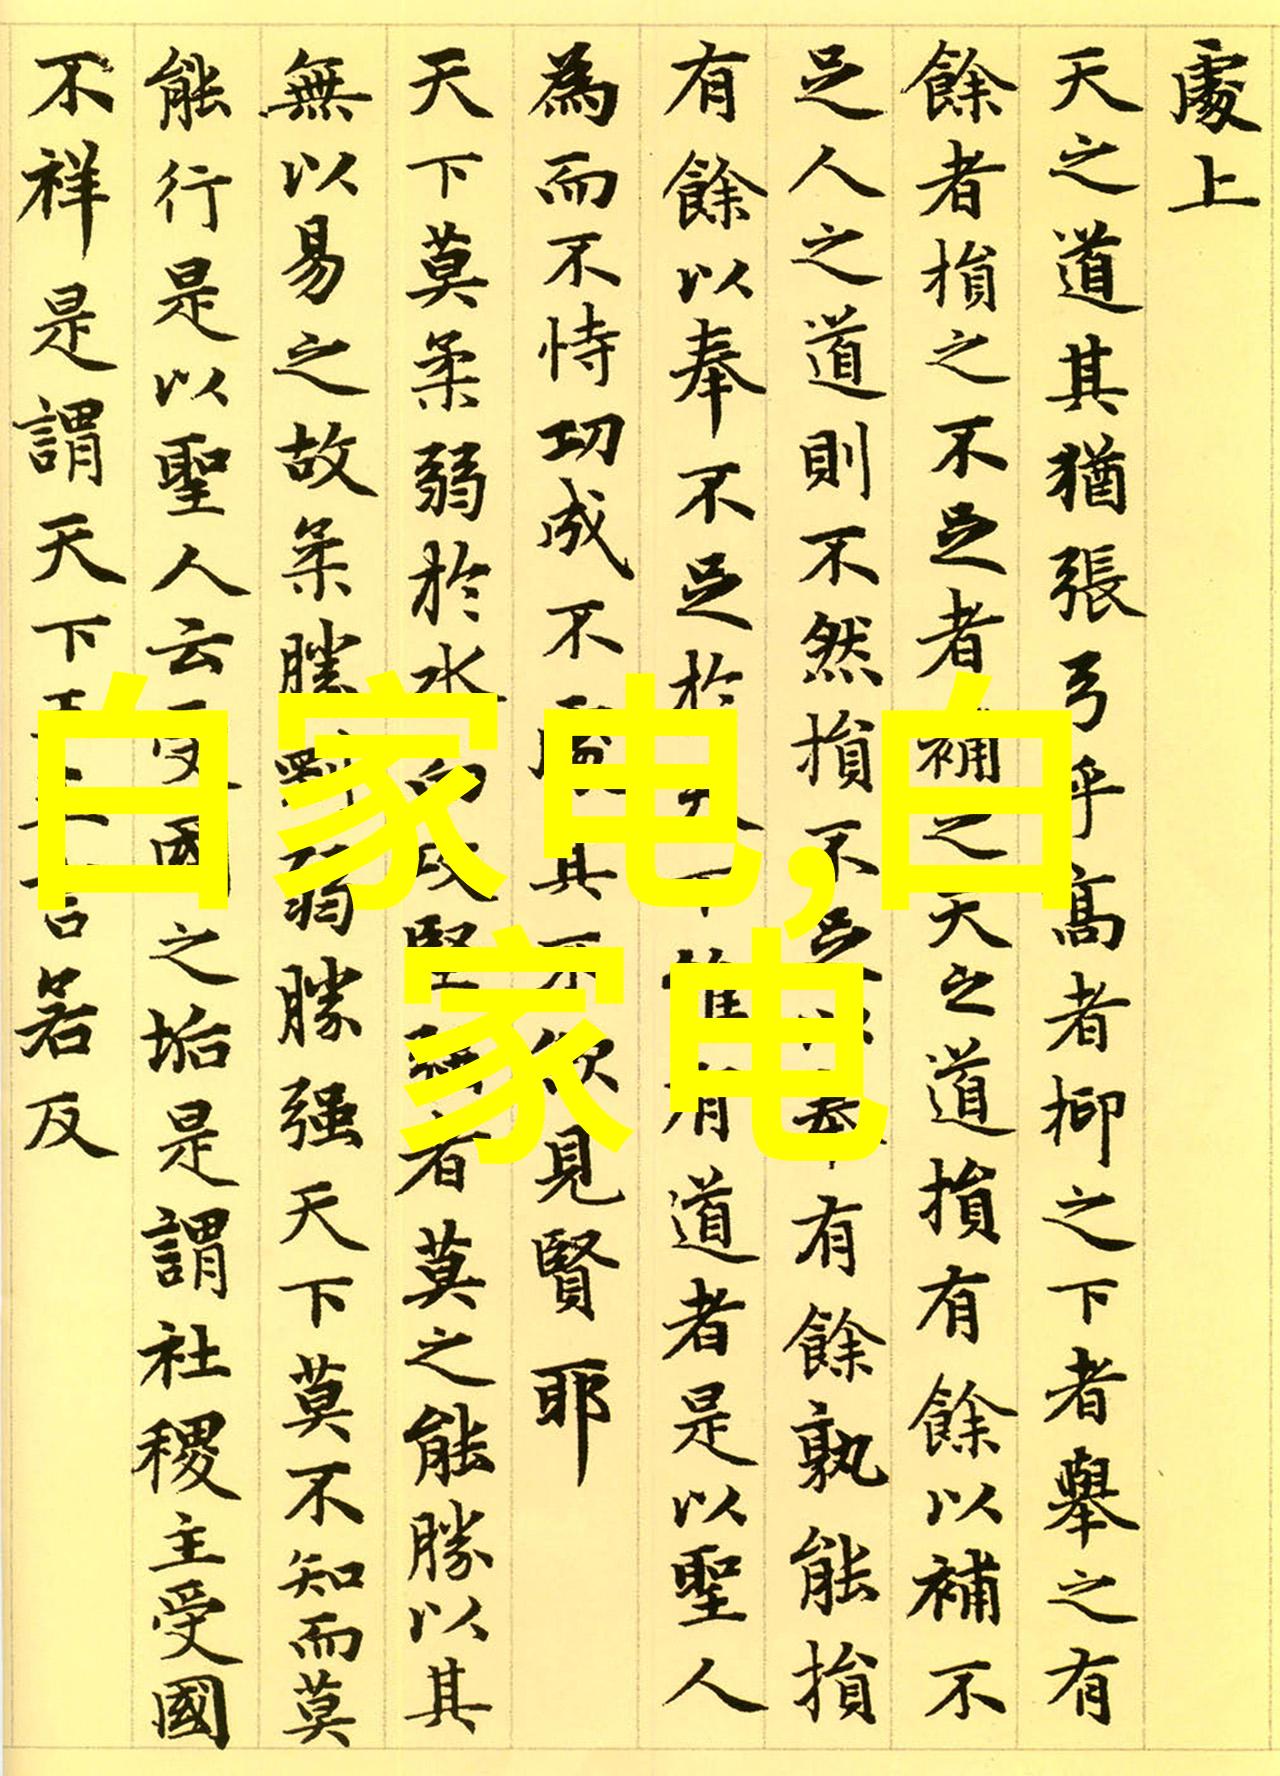 處上
天之道其猶張弓乎高者抑之下者舉之有
餘者損之不足者補之天之道損有餘以補不
足人之道則不然損不足以奉有餘孰能損
有餘以奉不足於天下有道者是以聖人
為而不恃功成不處其不欲見賢耶
天下莫柔弱於水而攻堅强者莫之能勝以其
無以易之故柔勝剛弱勝强天下莫不知而莫
能行是以聖人云受國之垢是謂社稷主受國
不祥是謂天下言若反
白家电,白
家电